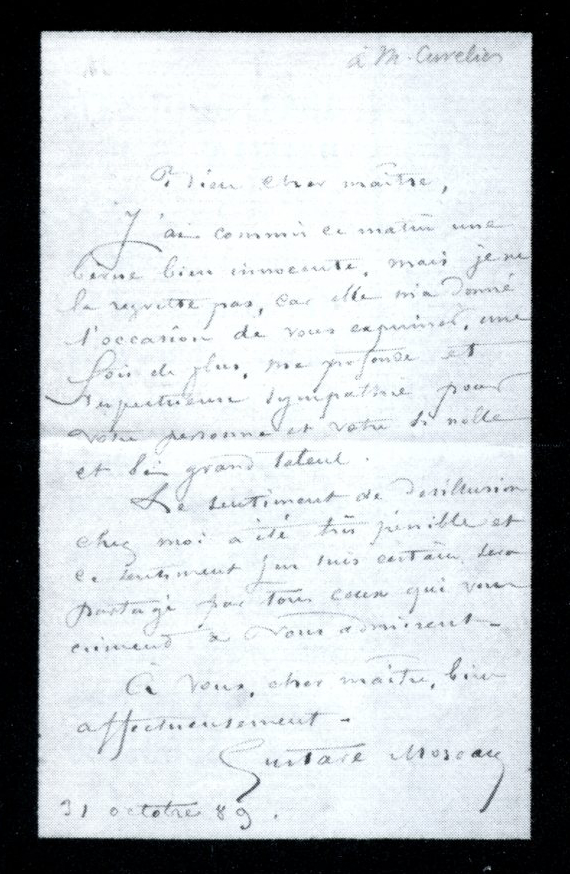 à M. Cuvelier
Bien cher maître,
J'ai commis ce matin une
bévue bien innocente, mais je ne
la regrette pas, car elle m'a donné
l'occasion de vous exprimer, une
fois de plus, ma profonde et
respectueuse sympathie pour
votre personne et votre si noble
et si grand talent.
Le sentiment de désillusion
chez moi a été très pénible et
ce sentiment j'en suis certain sera
partagé par tous ceux qui vous
aiment & vous admirent -
À vous, cher maître, bien
affectueusement -
Gustave Moreau
31 octobre 89.